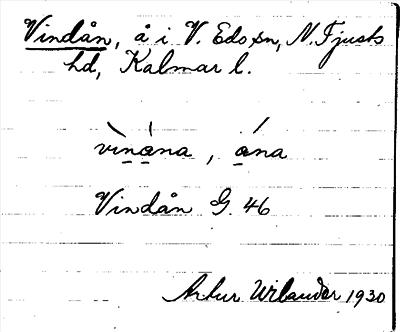 Vindån, å i V. Eds sn, N. Tjusts
hd, Kalmar l.
vìnȧna, ána
Vindån G. 46
Artur Wilander 1930